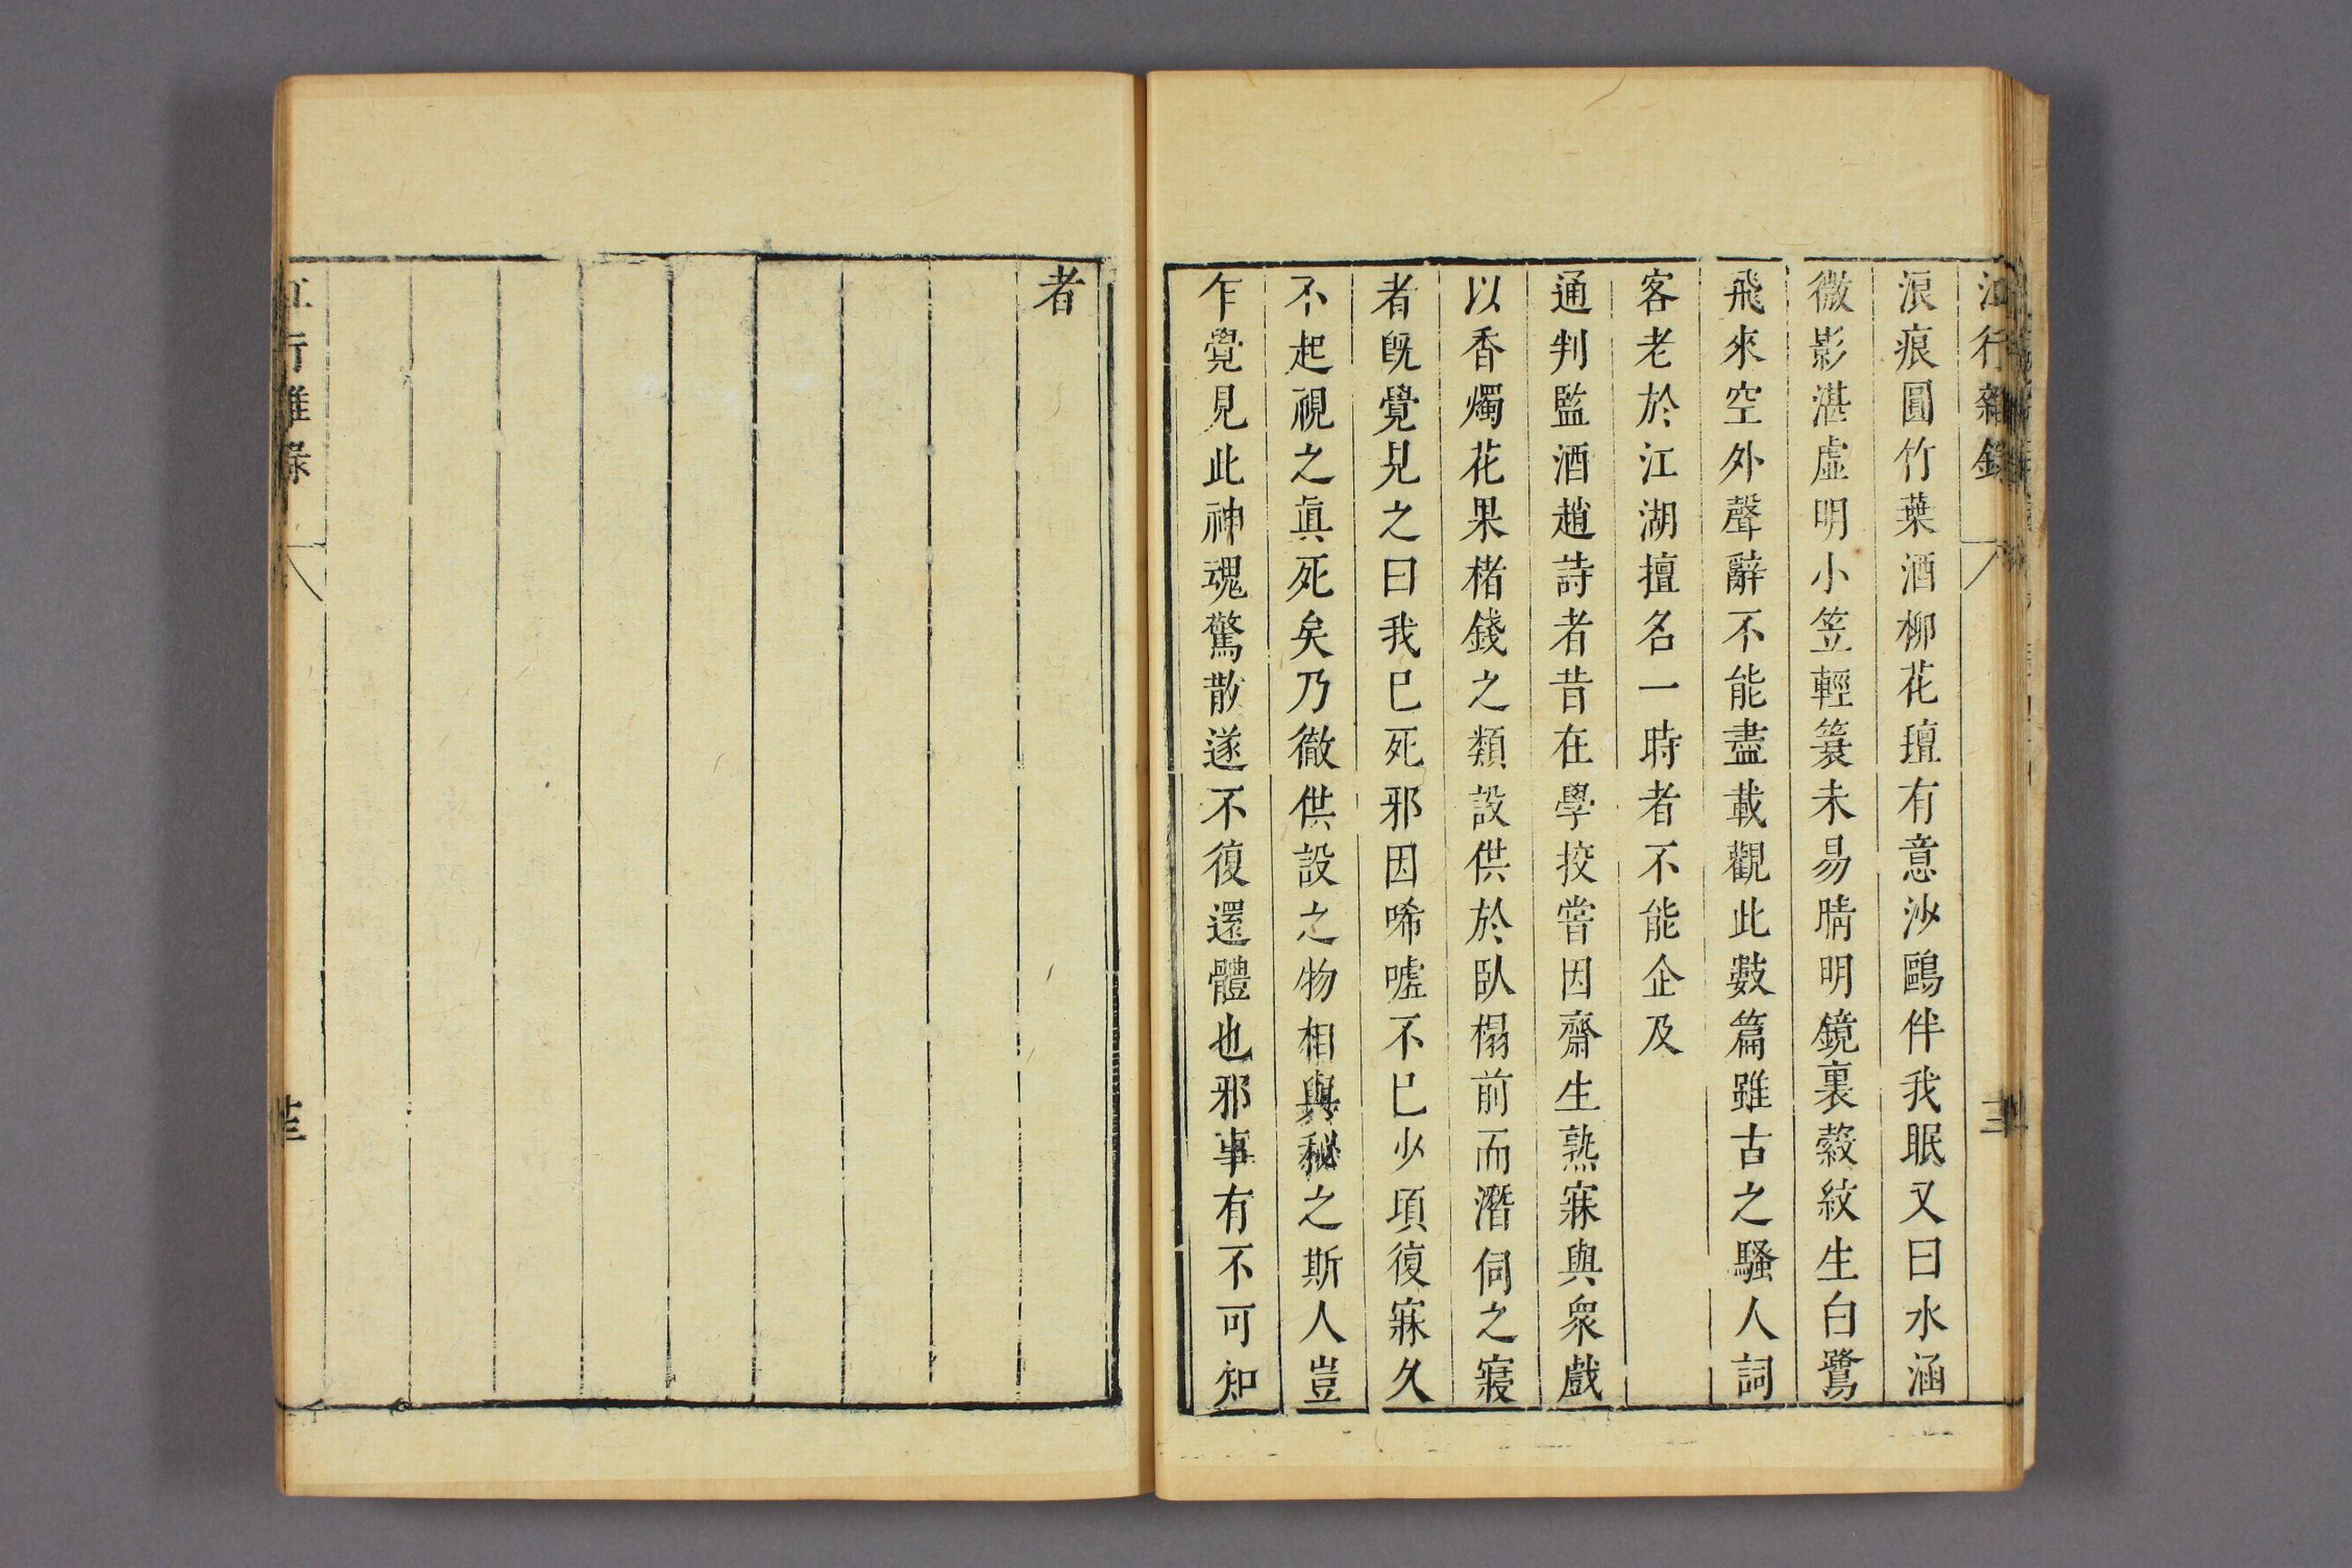 江行雜錄
浪痕圓竹葉酒柳花璮有意沙鷗伴我眠又曰水涵
微影湛虛明小笠輕簑未易晴明鏡裏縠紋生白鷺
飛來空外聲辭不能盡載觀此數篇雖古之騷人詞
客老於江湖擅名一時者不能企及
通判監酒趙詩者昔在學挍嘗因齋生熟寐與衆戲
以香燭花果楮錢之類設供於臥榻前而潛伺之寢
者旣覺見之曰我巳死邪因唏噓不巳少項復寐久
不起視之眞死矣乃徹供設之物相與秘之斯人豈
乍覺見此神魂驚散遂不復還體也邪事有不可知
者
江行雜錄